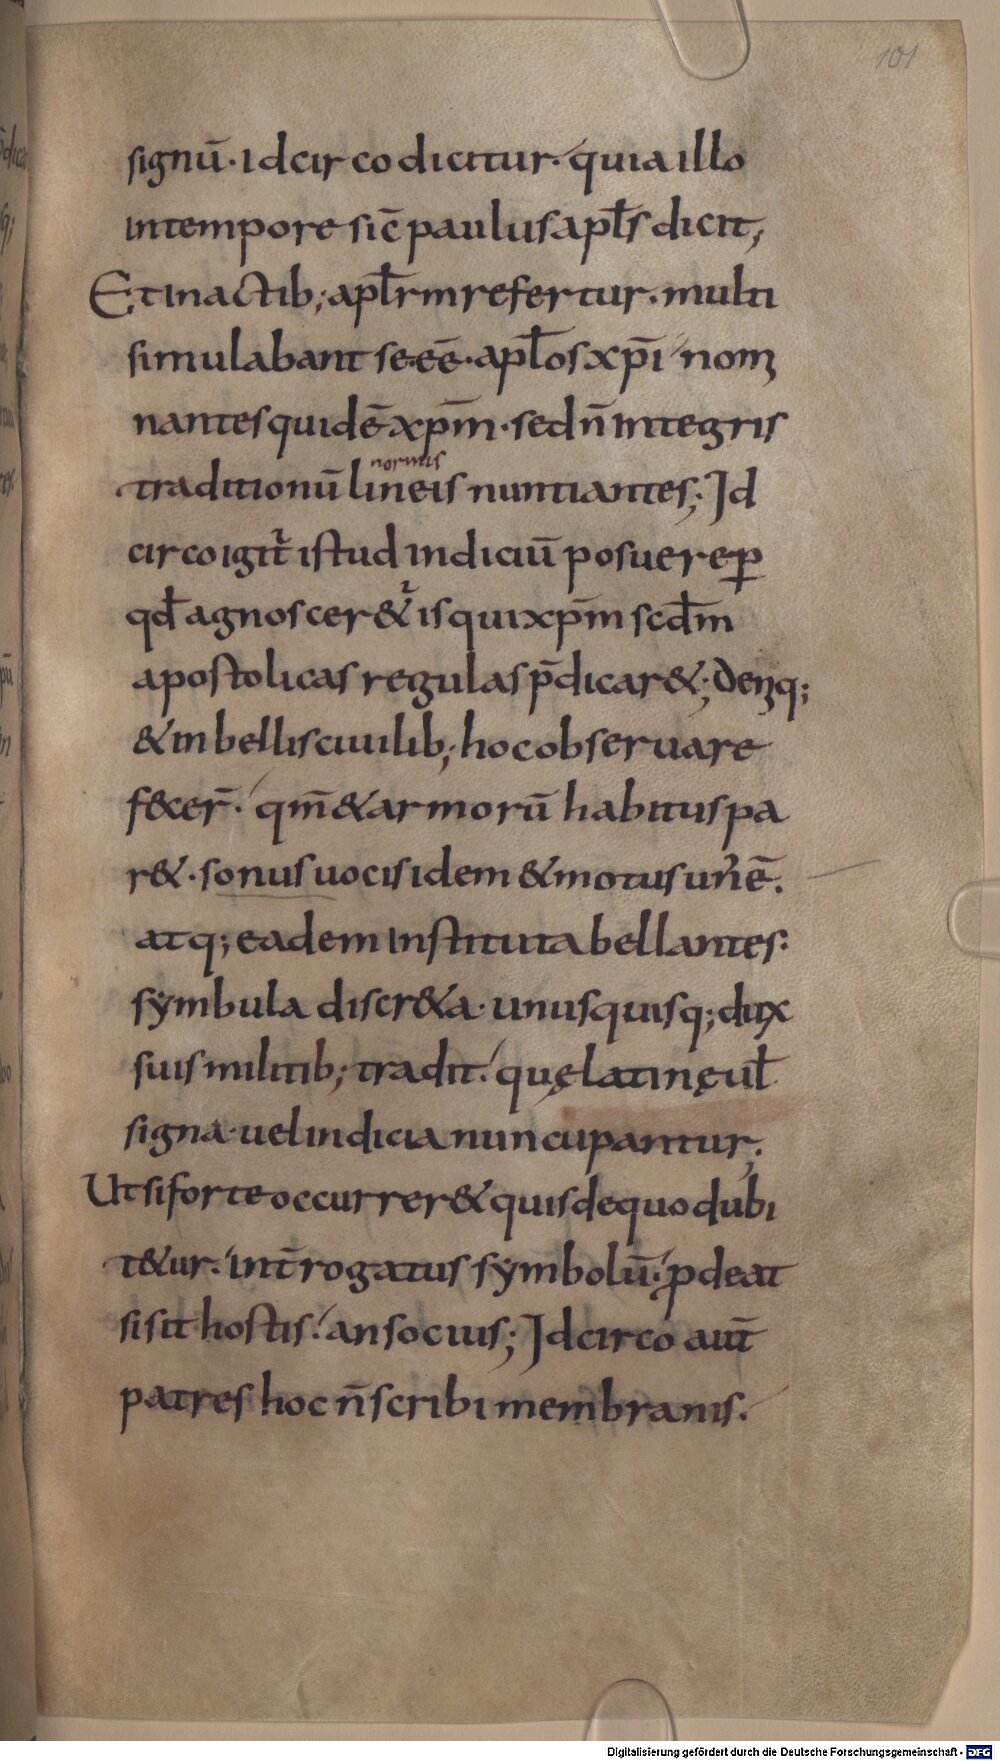 101
signū· idcirco dicitur· quia illo
in tempore sic̄ paulus apl̄s dicit;
Et in actib; apl̄rm refertur· multi
simulabant se·eē· apl̄os xp̄i nomi
nantes quidē xp̄m· sed n̄ integris
normis
traditionū lineis nuntiantes; Id
circo igit̄ istud indiciū posuere ꝑ
qd̄ agnoscer&ur is qui xp̄m scd̄m
apostolicas regulas p̄dicar&; deniq;
& in bellis ciuilib; hoc obseruare
f&cer̄· qm̄ & armorū habitus pa
r&· sonus uocis idem & motus un' ē·
atq; eadem instituta bellantes:
sẏmbula discr&a· unusquisq; dux
suis militib; tradit· quę latinę ul̄
signa· uel indicia nuncupantur;
Ut si forte occurrer& quis de quo dubi
t&ur· int̄rogatus sẏmbolū· ꝓdeat
si sit hostis· an socius; Idcirco aut̄
patres hoc n̄ scribi membranis·
Digitalisierung gefördert durch die Deutsche Forschungsgemeinschaft - DFG